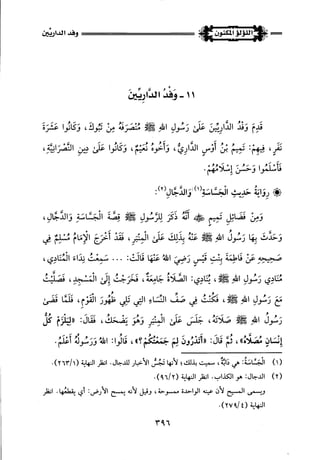 اللؤلؤ المكنون
وفد الداريين
١١ - وَفْدُ الدَّارِيِّينَ
قَدِمَ وَفْدُ الدَّارِيِّينَ عَلَى رَسُولِ اللهِ ﷺ مُنْصَرَفَهُ مِنْ تَبُوكَ، وَكَانُوا عَشَرَةَ
نَفَرٍ، فِيهِمْ: تَمِيمُ بْنُ أَوْسٍ الدَّارِيُّ، وَأَخُوهُ نُعَيْمٌ، وَكَانُوا عَلَى دِينِ النَّصْرَانِيَّةِ،
فَأَسْلَمُوا وَحَسُنَ إِسْلَامُهُمْ.
* رِوَايَةُ حَدِيثِ الْجَسَّاسَةِ(١) وَالدَّجَّالِ(٢):
وَمِنْ فَضَائِلِ تَمِيمٍ ﵁ أَنَّهُ ذَكَرَ لِلرَّسُولِ ﷺ قِصَّةَ الْجَسَّاسَةِ وَالدَّجَّالِ،
وَحَدَّثَ بِهَا رَسُولُ اللهِ ﷺ عَنْهُ بِذَلِكَ عَلَى الْمِنْبَرِ، فَقَدْ أَخْرَجَ الْإِمَامُ مُسْلِمٌ فِي
صَحِيحِهِ عَنْ فَاطِمَةَ بِنْتِ قَيْسٍ رَضِيَ اللهُ عَنْهَا قَالَتْ: ... سَمِعْتُ نِدَاءَ الْمُنَادِي،
مُنَادِي رَسُولِ اللهِ ﷺ، يُنَادِي: الصَّلَاةُ جَامِعَةٌ، فَخَرَجْتُ إِلَى الْمَسْجِدِ، فَصَلَّيْتُ
مَعَ رَسُولِ اللهِ ﷺ، فَكُنْتُ فِي صَفِّ النِّسَاءِ الَّتِي تَلِي ظُهُورَ الْقَوْمِ، فَلَمَّا قَضَى
رَسُولُ اللهِ ﷺ صَلَاتَهُ، جَلَسَ عَلَى الْمِنْبَرِ وَهُوَ يَضْحَكُ، فَقَالَ: «لِيَلْزَمْ كُلُّ
إِنْسَانٍ مُصَلَّاهُ»، ثُمَّ قَالَ: «أَتَدْرُونَ لِمَ جَمَعْتُكُمْ؟»، قَالُوا: اللهُ وَرَسُولُهُ أَعْلَمُ.
(١) الْجَسَّاسَةُ: هي دَابَّة، سميت بذلك، لأنها تَجُسُّ الأخبار للدجال. انظر النهاية (٢٦٣/١).
(٢) الدجال: هو الكذاب. انظر النهاية (٩٦/٢).
ويسمى المسيح لأن عينه الواحدة ممسوحة، وقيل لأنه يمسح الأرض: أي يقطعها. انظر
النهاية (٢٧٩/٤).
٣٩٦